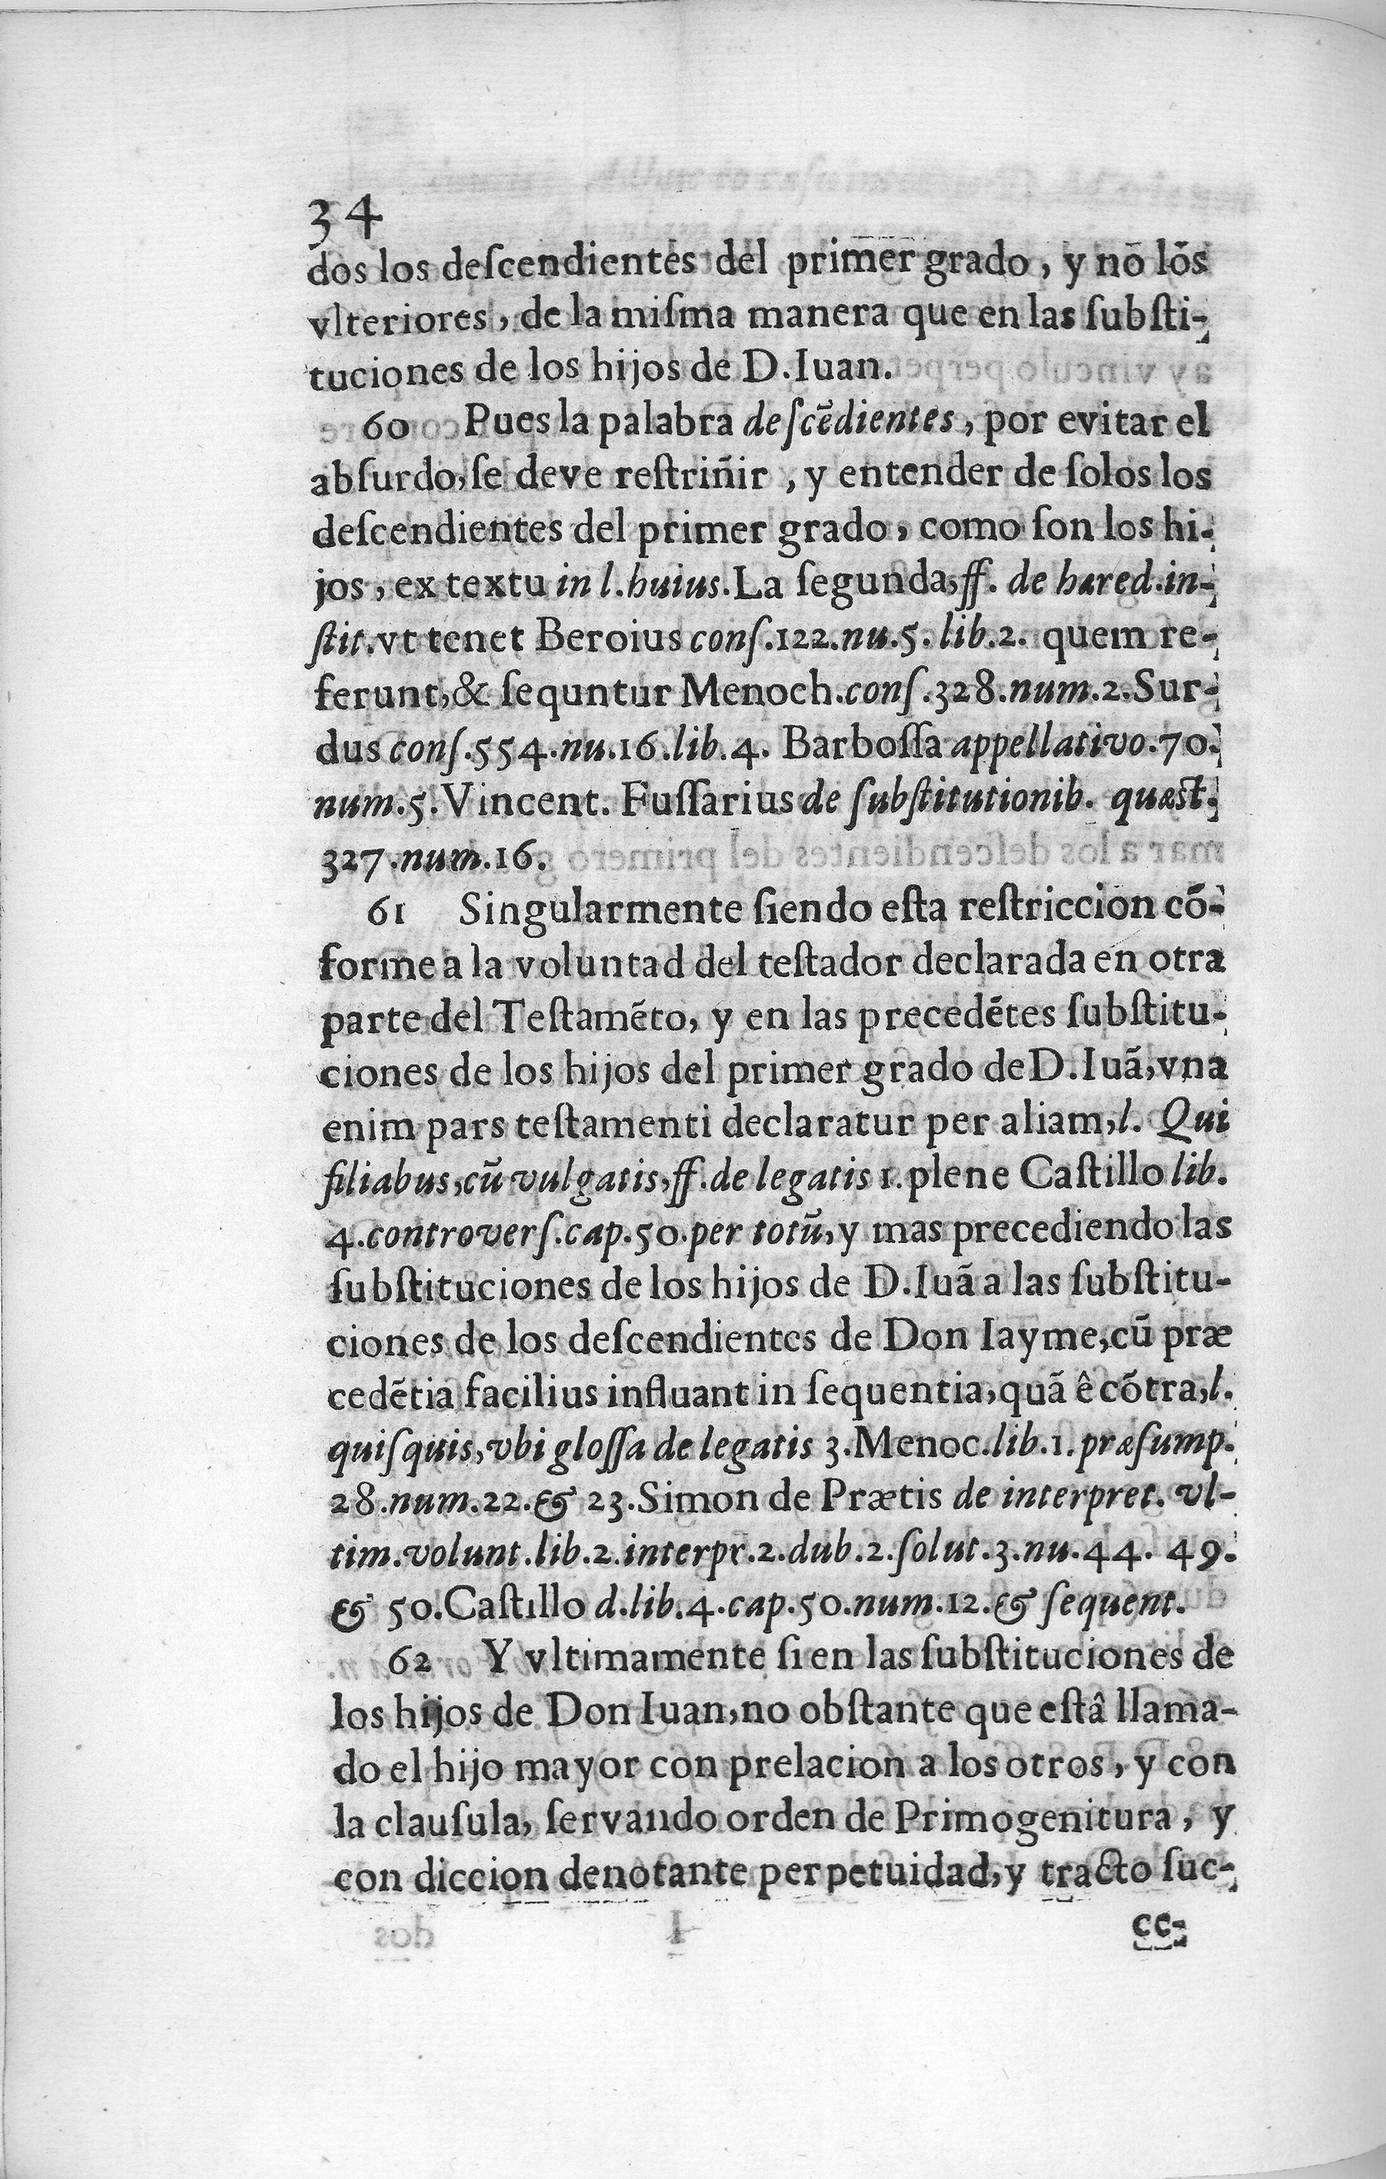 34
dos los deſcendientes del primer grado, y no los
vlteriores, de la miſma manera que en las ſubſti-
tuciones de los hijos de D.Iuan.
60 Pues la palabra deſcēdientes, por evitar el
abſurdo, ſe deve reſtriñir, y entender de ſolos los
deſcendientes del primer grado, como ſon los hi-
jos, ex textu in l.huius.La ſegunda,ff. de hæred.in-
ſtit.vt tenet Beroius conſ.122.nu.5. lib.2. quem re-
ferunt,& ſequntur Menoch.conſ.328.num.2.Sur-
dus conſ.554.nu.16.lib.4. Barboſſa appellativo.70.
num.5.Vincent. Fuſſarius de ſubſtitutionib. quæst.
327.num.16.
61 Singularmente ſiendo eſta reſtriccion cō-
forme a la voluntad del teſtador declarada en otra
parte del Teſtamēto, y en las precedētes ſubſtitu-
ciones de los hijos del primer grado de D.Iuã,vna
enim pars teſtamenti declaratur per aliam,l. Qui
filiabus,cū vulgatis,ff.de legatis 1.plene Caſtillo lib.
4.controverſ.cap.50.per totū,y mas precediendo las
ſubſtituciones de los hijos de D.Iuã a las ſubſtitu-
ciones de los deſcendientes de Don Iayme,cū præ
cedētia facilius influant in ſequentia,quã ê cōtra,l.
quiſquis,vbi gloſſa de legatis 3.Menoc.lib.1.præſump.
28.num.22.& 23.Simon de Prætis de interpret. vl-
tim.volunt.lib.2.interpr̄.2.dub.2.ſolut.3.nu.44. 49.
& 50.Caſtillo d.lib.4.cap.50.num.12.& ſequent.
62 Y vltimamente ſi en las ſubſtituciones de
los hijos de Don Iuan,no obſtante que eſtâ llama-
do el hijo mayor con prelacion a los otros, y con
la clauſula, ſervando orden de Primogenitura, y
con diccion denotante perpetuidad,y tracto ſuc-
cc-